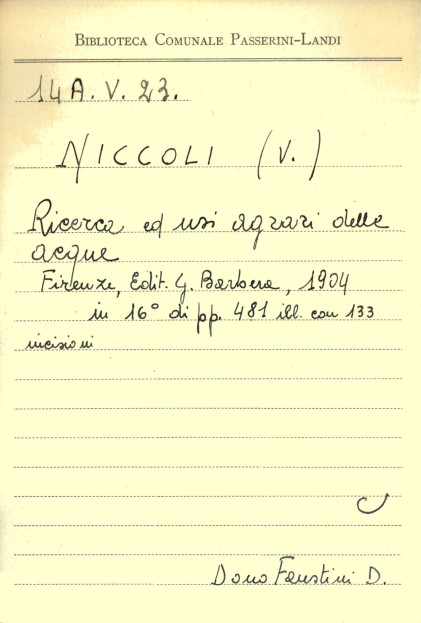 BIBLIOTECA COMUNALE PASSERINI-LANDI
14A. V. 23.
NICCOLI (V.)
Ricerca ed usi agrari delle
acque
Firenze, Edit. G. Barbera, 1904
in 16° di pp. 481 ill. con 133
incisioni
Dono Faustini D.